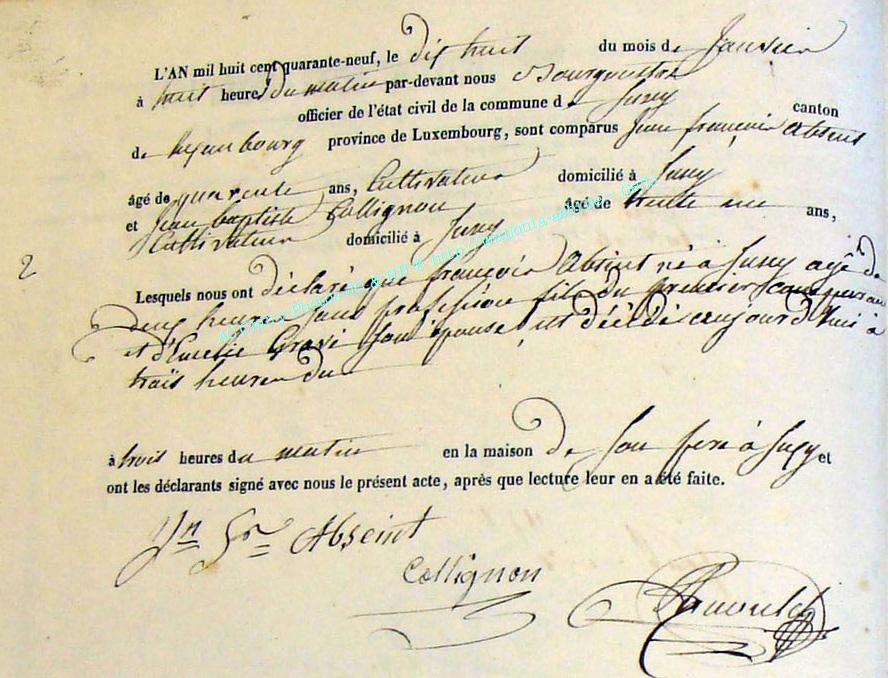 L'AN mil huit cent quarante-neuf, le dix huit du mois de Janvier
à huit heures du matin par-devant nous Bourgmestre
officier de l'état civil de la commune de Juzey canton
de province de Luxembourg, sont comparus Jean françois Absint
âgé de quarente ans, Cultivateur domicilié à Jusey
et Jean baptiste Collignon âgé de trente un ans,
Cultivateur domicilié à Jusey
2
Lesquels nous ont déclaré que françois Absint né à Jusey agé de
deux heures sans profession fils du premier comparant
et d'Emelie Gravé son épouse, est décédé aujourd'hui à
trois heures du
à trois heures du matin en la maison de son pere à Jusey et
ont les déclarants signé avec nous le présent acte, après que lecture leur en a été faite.
Jn Fr Abseint
Collignon